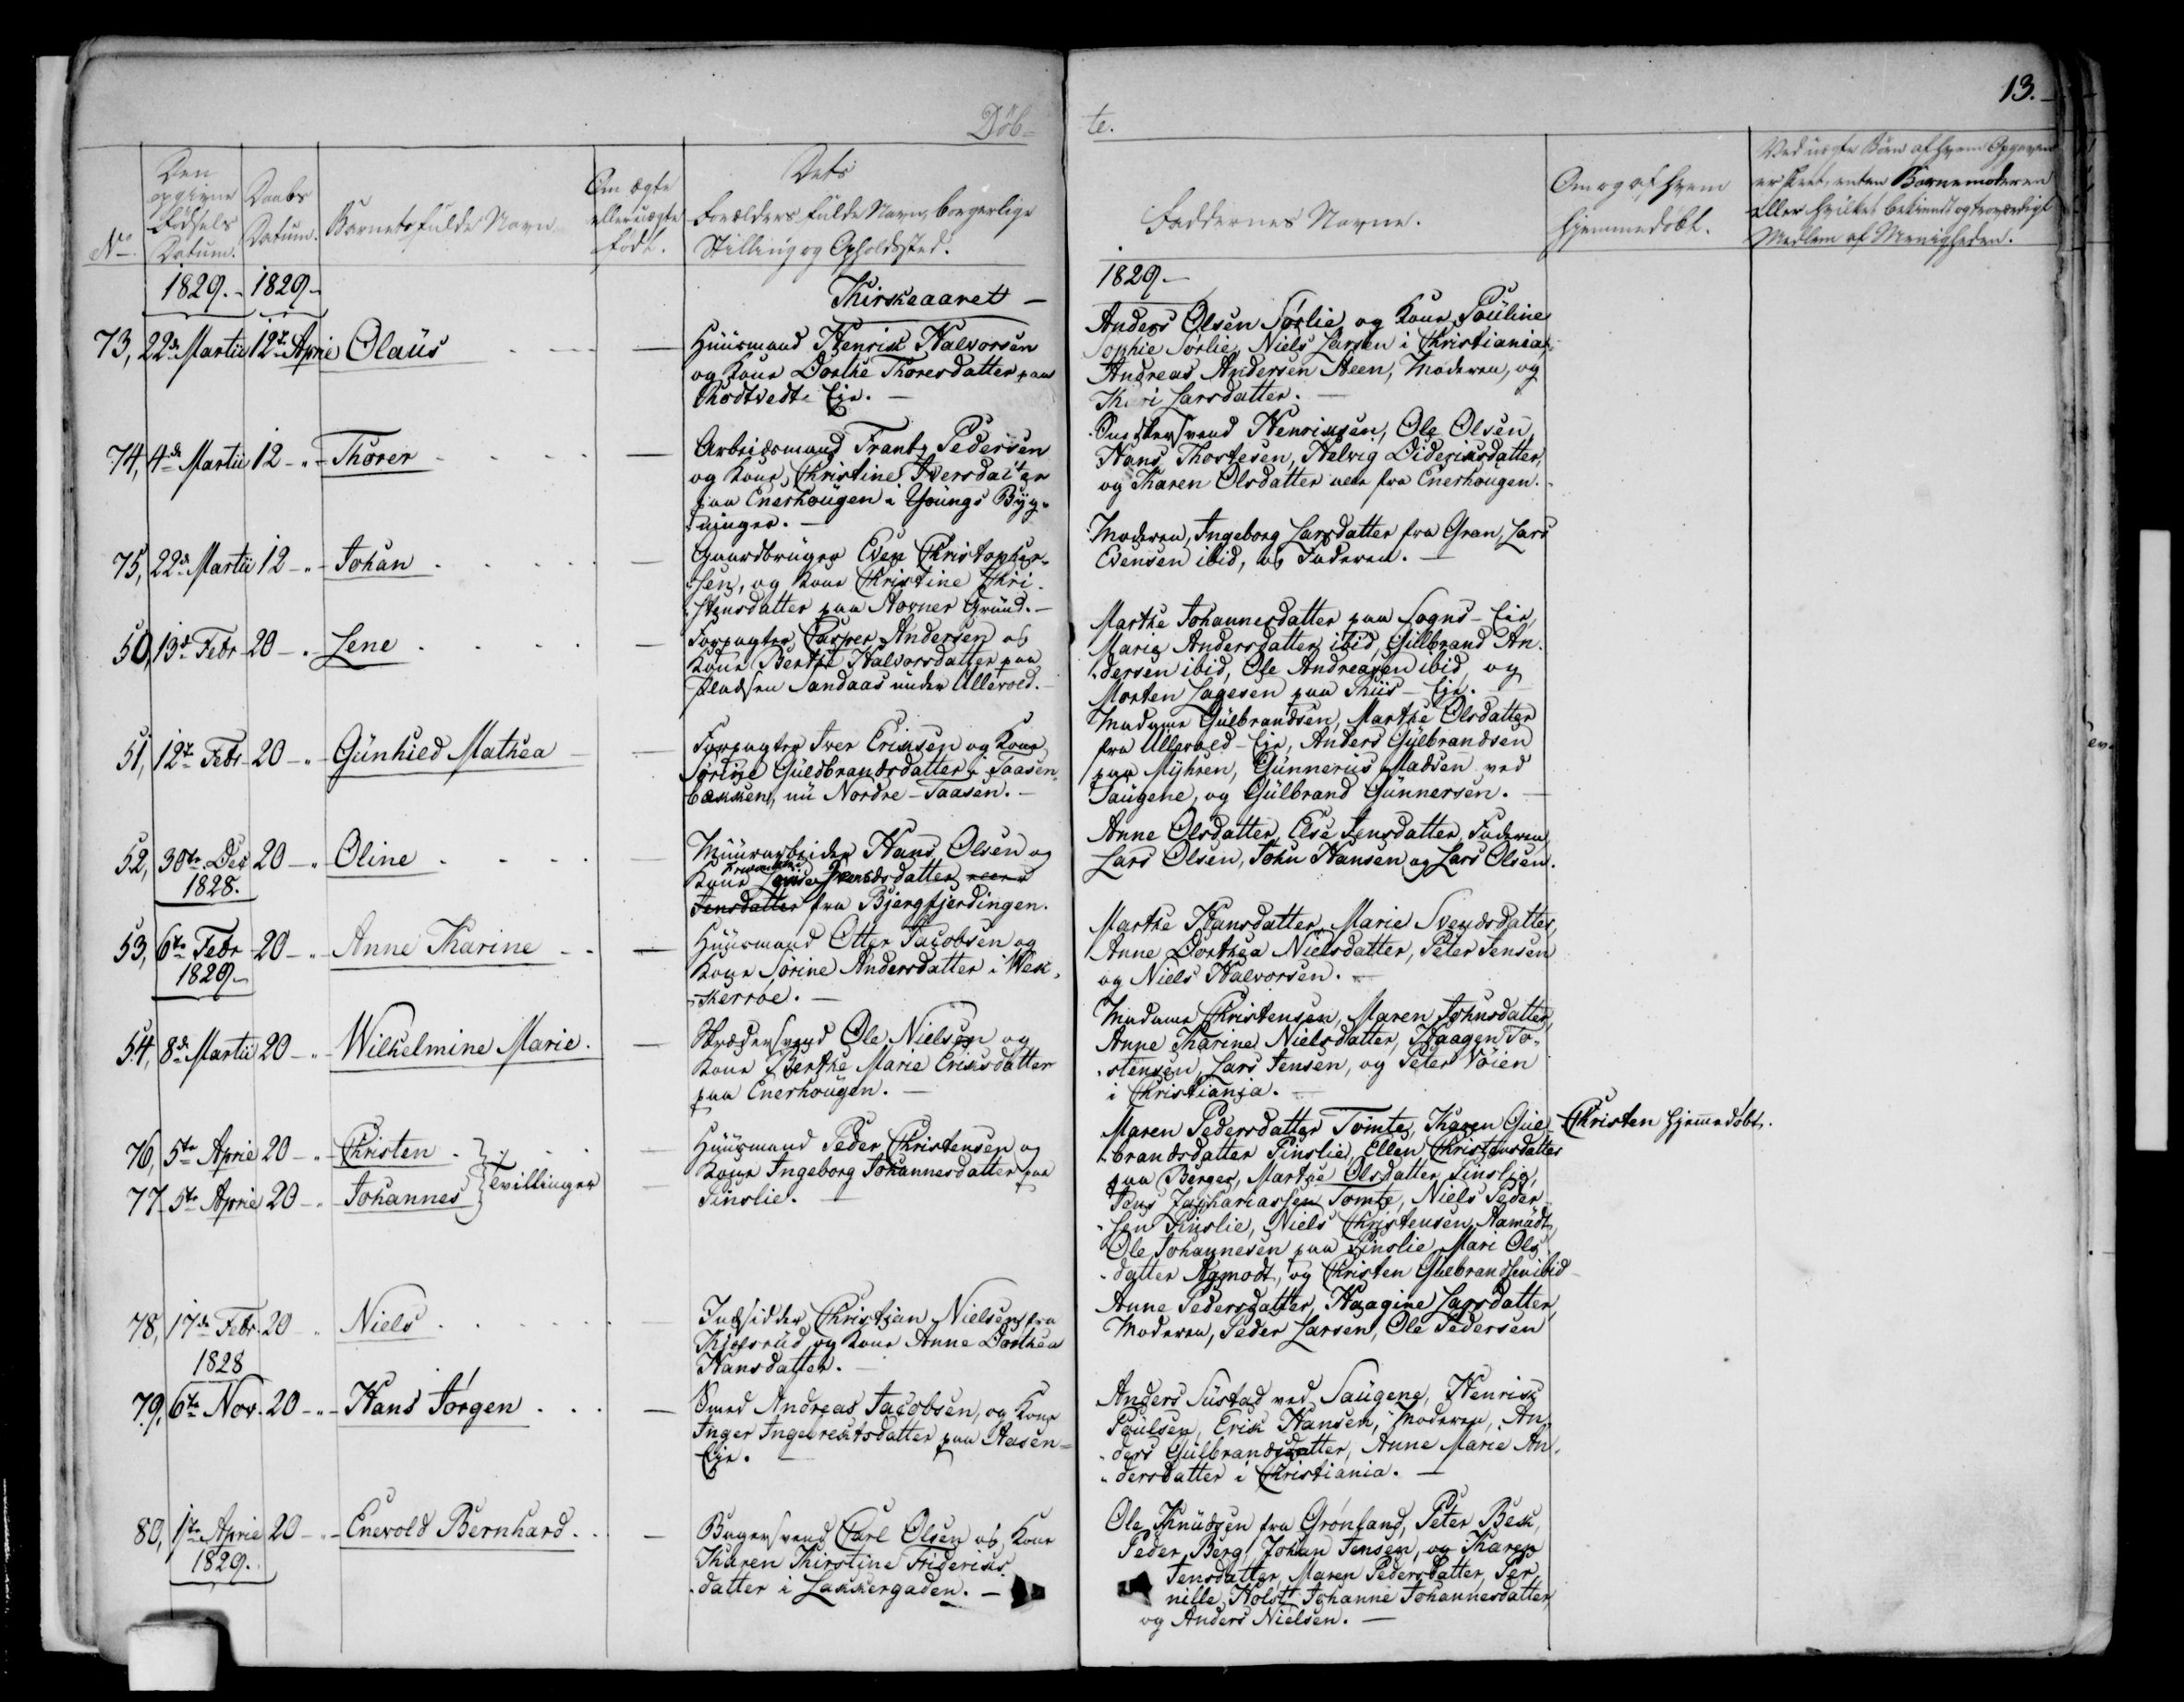 13.
Döb-
te.
No
Den opgivne Födsels Datum.
Daabs Datum.
Barnets fulde Navn
Om ægte eller uægte födt.
Dets Forældres fulde Navn, borgerlige Stilling og Opholdssted.
Faddernes Navne.
Om og af hvem hjemmedöbt.
Ved uægte Börn af hvem Opgaven er skeet, enten Barnemoderen eller hvilket bekiendt og troværdigt Medlem af Menigheden.
1829. 1829
Kirkeaaret
1829.
73, 22de Martii 12te April Olaus
Huusmand Henrik Halvorsen
og Kone Dorthe Thoresdatter paa
Rödtvedt Eje.
Anders Olsen Sörlie og Kone Pauline
Sophie Sörlie, Niels Larsen i Christiania,
Andreas Andersen Steen, Moderen, og
Kari Larsdatter.
74, 4de Martii 12 Thorer
Arbeidsmand Frantz Pedersen
og Kone Christine Iversdatter
paa Enerhougen i Youngs Byg-
ninger.
Henriksen, Ole Olsen,
Hans Thostesen, Helvig Dideriksdatter,
og Karen Olsdatter alle fra Enerhougen.
75, 22de Martii 12 Johan
Gaardbruger Even Christopher-
sen, og Kone Christine Chri-
stensdatter paa Stovner Grund.
Moderen, Ingeborg Larsdatter fra Gran, Lars
Evensen ibid, og Faderen.
50, 13de Febr 20 Lene
Forpagter Casper Andersen og
Kone Berthe Halvorsdatter paa
Pladsen Sandaas under Ullevold.
Marthe Johannesdatter paa Sogns-Eie,
Marie Andersdatter ibid, Gulbrand An-
dersen ibid, Ole Andreasen ibid, og
Morten Lagesen paa Riis-Eje.
51, 12te Febr 20 Gunhild Mathea
Forpagter Iver Eriksen og Kone
Sörine Guldbrandsdatter i Taasen
bakken, nu Nordre-Taasen.
Madame Gulbrandsen, Marthe Olsdatter
fra Ullevold-Eie, Anders Gulbrandsen
paa Myhren, Gunnerius Madsen ved
Saugene, og Gulbrand Gunnersen.
52, 30te Dec 20 Oline
1828.
Muurarbeider Hans Olsen og
Kone datter eller
Jensdatter fra Bjergfjerdingen.
Anne Olsdatter, Else Jensdatter, Faderen
Lars Olsen, John Hansen og Lars Olsen.
53, 6te Febr 20 Anne Karine
1829
Huusmand Otter Jacobsen og
Kone Sörine Andersdatter i Wek-
keröe.
Marthe Hansdatter, Marie Svendsdatter,
Anne Dorthea Nielsdatter, Peter Jensen
og Niels Halvorsen.
54, 8de Martii 20 Wilhelmine Marie.
Skrædersvend Ole Nielsen og
Kone Berthe Marie Eriksdatter
paa Enerhougen.
Madame Christensen, Maren Johnsdatter,
Anne Karine Nielsdatter, Haagen To-
stensen, Lars Jensen, og Peter Vöien
i Christiania.
76, 5te April 20 Christen
77 5te April 20 Johannes
Tvillinger
Huusmand Peder Christensen og
Kone Ingeborg Johannesdatter paa
Linslie.
Maren Pedersdatter Tömte, Karen Gul-
brandsdatter Linslie, Ellen Christensdatter
paa Berger, Marthe Olsdatter Linslie,
Jens Zachariassen Tomte, Niels Peder-
sen Linslie, Niels Christensen Aamodt,
Ole Johannesen paa Linslie, Mari Ols-
datter Aamodt, og Christen Gulbrandsen ibid
Christen hjemmedöbt.
78, 17de Febr. 20 Niels
Indsidder Christian Nielsen fra
Kjelsrud og Kone Anne Dorthea
Hansdatter.
Anne Pedersdatter, Haagine Larsdatter,
Moderen, Peder Larsen, Ole Pedersen
1828
79, 6te Nov. 20 Hans Jörgen
Smed Andreas Jacobsen, og Kone
Inger Ingebrektsdatter paa Aasen-
Eje.
Anders Sustad ved Saugene, Henrik
Poulsen, Erik Hansen, Moderen, An-
ders Gulbrandsdatter, Anne Marie An-
dersdatter i Christiania.
80, 1ste April 20 Enevold Bernhard
1829.
Bagersvend Carl Olsen og Kone
Karen Kirstine Frideriks-
datter i Lakkergaden.
Ole Knudsen fra Grönland, Peter Bek,
Peder Berg, Johan Jensen, og Karen
Jensdatter, Maren Pedersdatter, Per-
nille Holst, Johanne Johannesdatter
og Anders Nielsen.